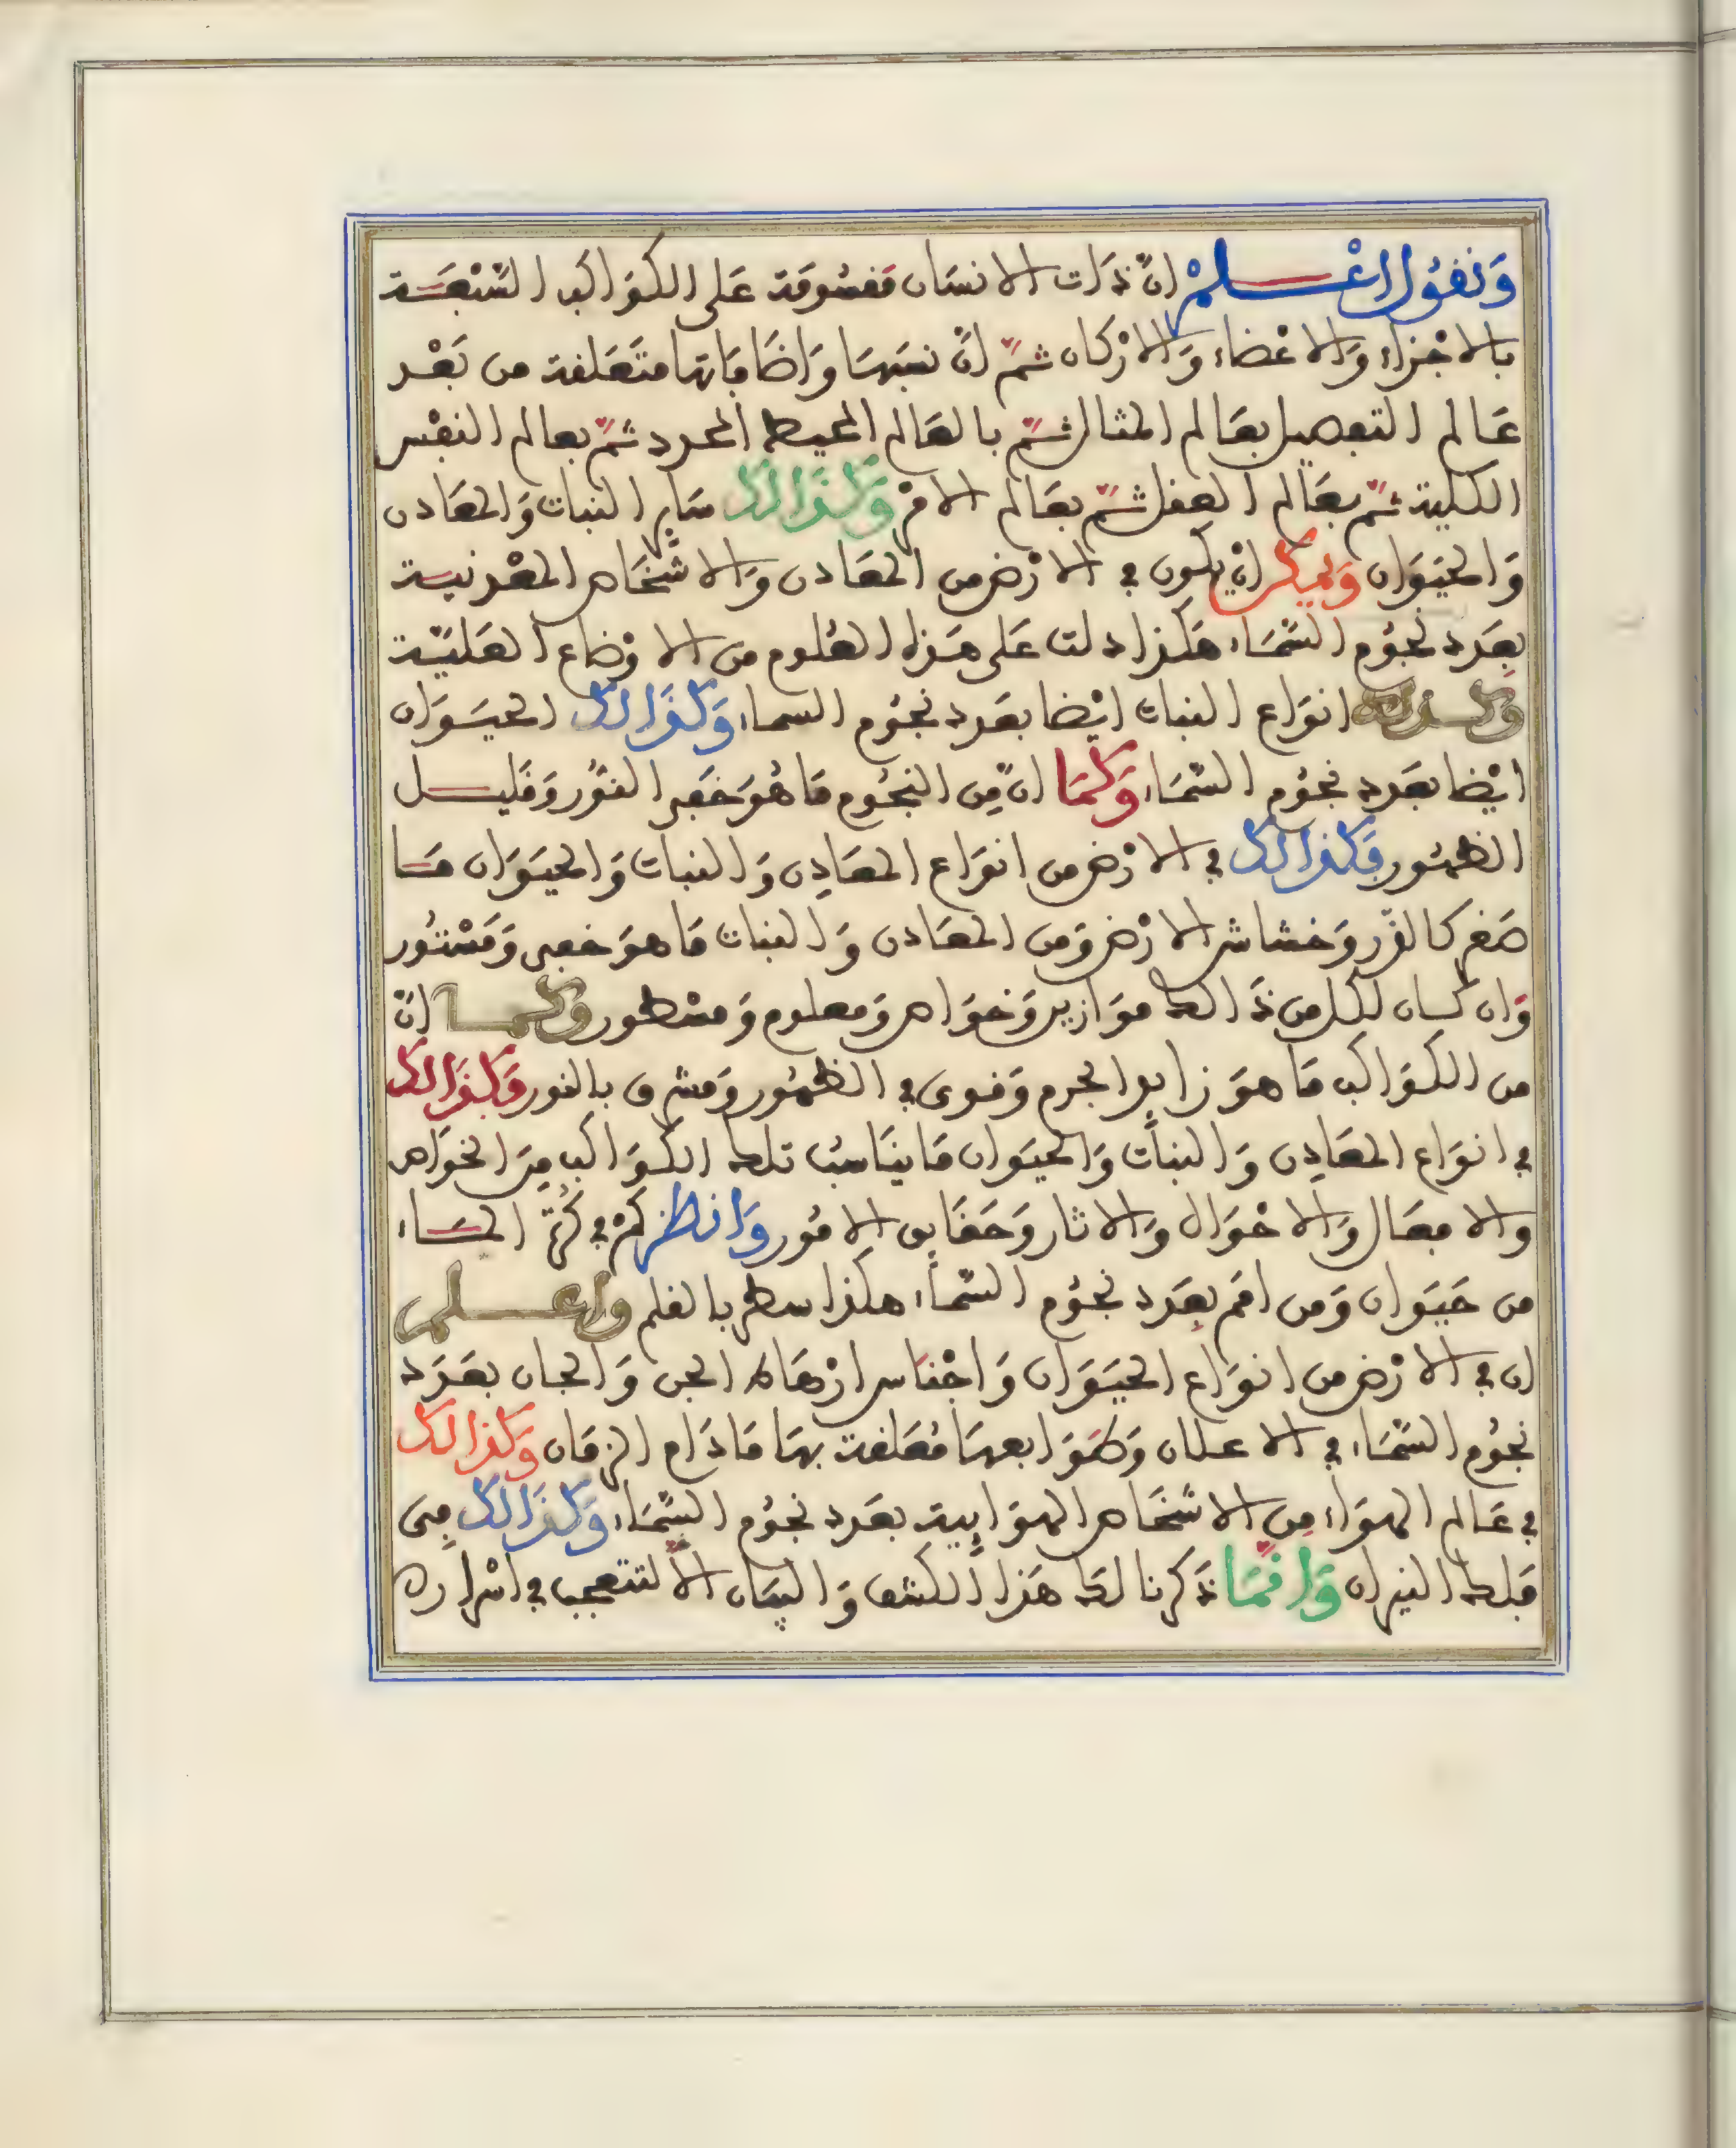 وَنَقُول اعْلمْ انّ ذَات الانسَان مَقسُومَة عَلى الكوَاكب السّبْعَة
بالاجْزاء وَالاعْضاء وَالارْكان ثمّ انّ نسَبهَا وَاضَافَاتها متَعَلقة من بَعْد
عَالم التفصيل بعَالم المثال ثمّ بالعَالم المحيط المحدد ثمّ بعالم النفْس
الكلية ثمّ بعَالم العقل ثمّ بعَالم الامْر وَكذَالك سَاير النبات وَالمعَادن
وَالحيَوَان وَيمكن انْ يكون في الارْض من المعَادن وَالاشْخَاص المعْدنيـة
بعَدد نجوُم السّمَاء هَكذا دلت عَلى هَذا العُلوم من الاوْضاع العَليّـة
وَكـذلك انوَاع النبات ايْضا بعَدد نجوُم السماء وَكذَالك الحيَـوَان
ايْضا بعَدد نجوُم السّمَاء وَكمَا انّ مِن النجُوم مَا هُوَ خَفي النّور وَقليـل
الظهُور فكذالك في الارْض من انوَاع المعَادِن وَالنبات وَالحيَوَان مَـا
صَغر كالذّر وَخشاش الارْض وَمن المعَادن وَالنبات مَا هوَ خفى وَمَسْتُور
وَان كـان لكل من ذَالك موَازين وَخوَاص وَمعلوم وَمسْطور وَكمـا انّ
من الكوَاكب مَا هوَ زايد الجرم وَقوى في الظهُور وَمشرق بالنور فكذَالك
في انوَاع المعَادِن وَالنبَات وَالحيَوان مَا ينَاسبُ تلك الكوَاكب مِنَ الخوَاص
والافعَال وَالاحْوَال وَالاثار وَحَقَايق الامُور وَانظرْ كمْ في كُرَة المـاء
من حَيَوان وَمن امَم بعَدد نجُوم السّمَاء هكذا سطر بالقلم واعلـم
ان في الارْض من انوَاع الحيَوَان وَاجْناس ارْهَاط الجن وَالجان بعَدَد
نجوُم السّمَاء في الاعلان وَطوَابعهَا مُعَلقة بهَا مَا دَام الزمَان وَكذالك
في عَالم الهوَاء مِن الاشخَاص الهوَايية بعَدد نجُوم السّمَاء وَكذَالك مِى
فلك النيران وَانمَّا ذَكرنا لك هَذا الكشف وَالبيَان الاّ لتتعجب في اسْراره